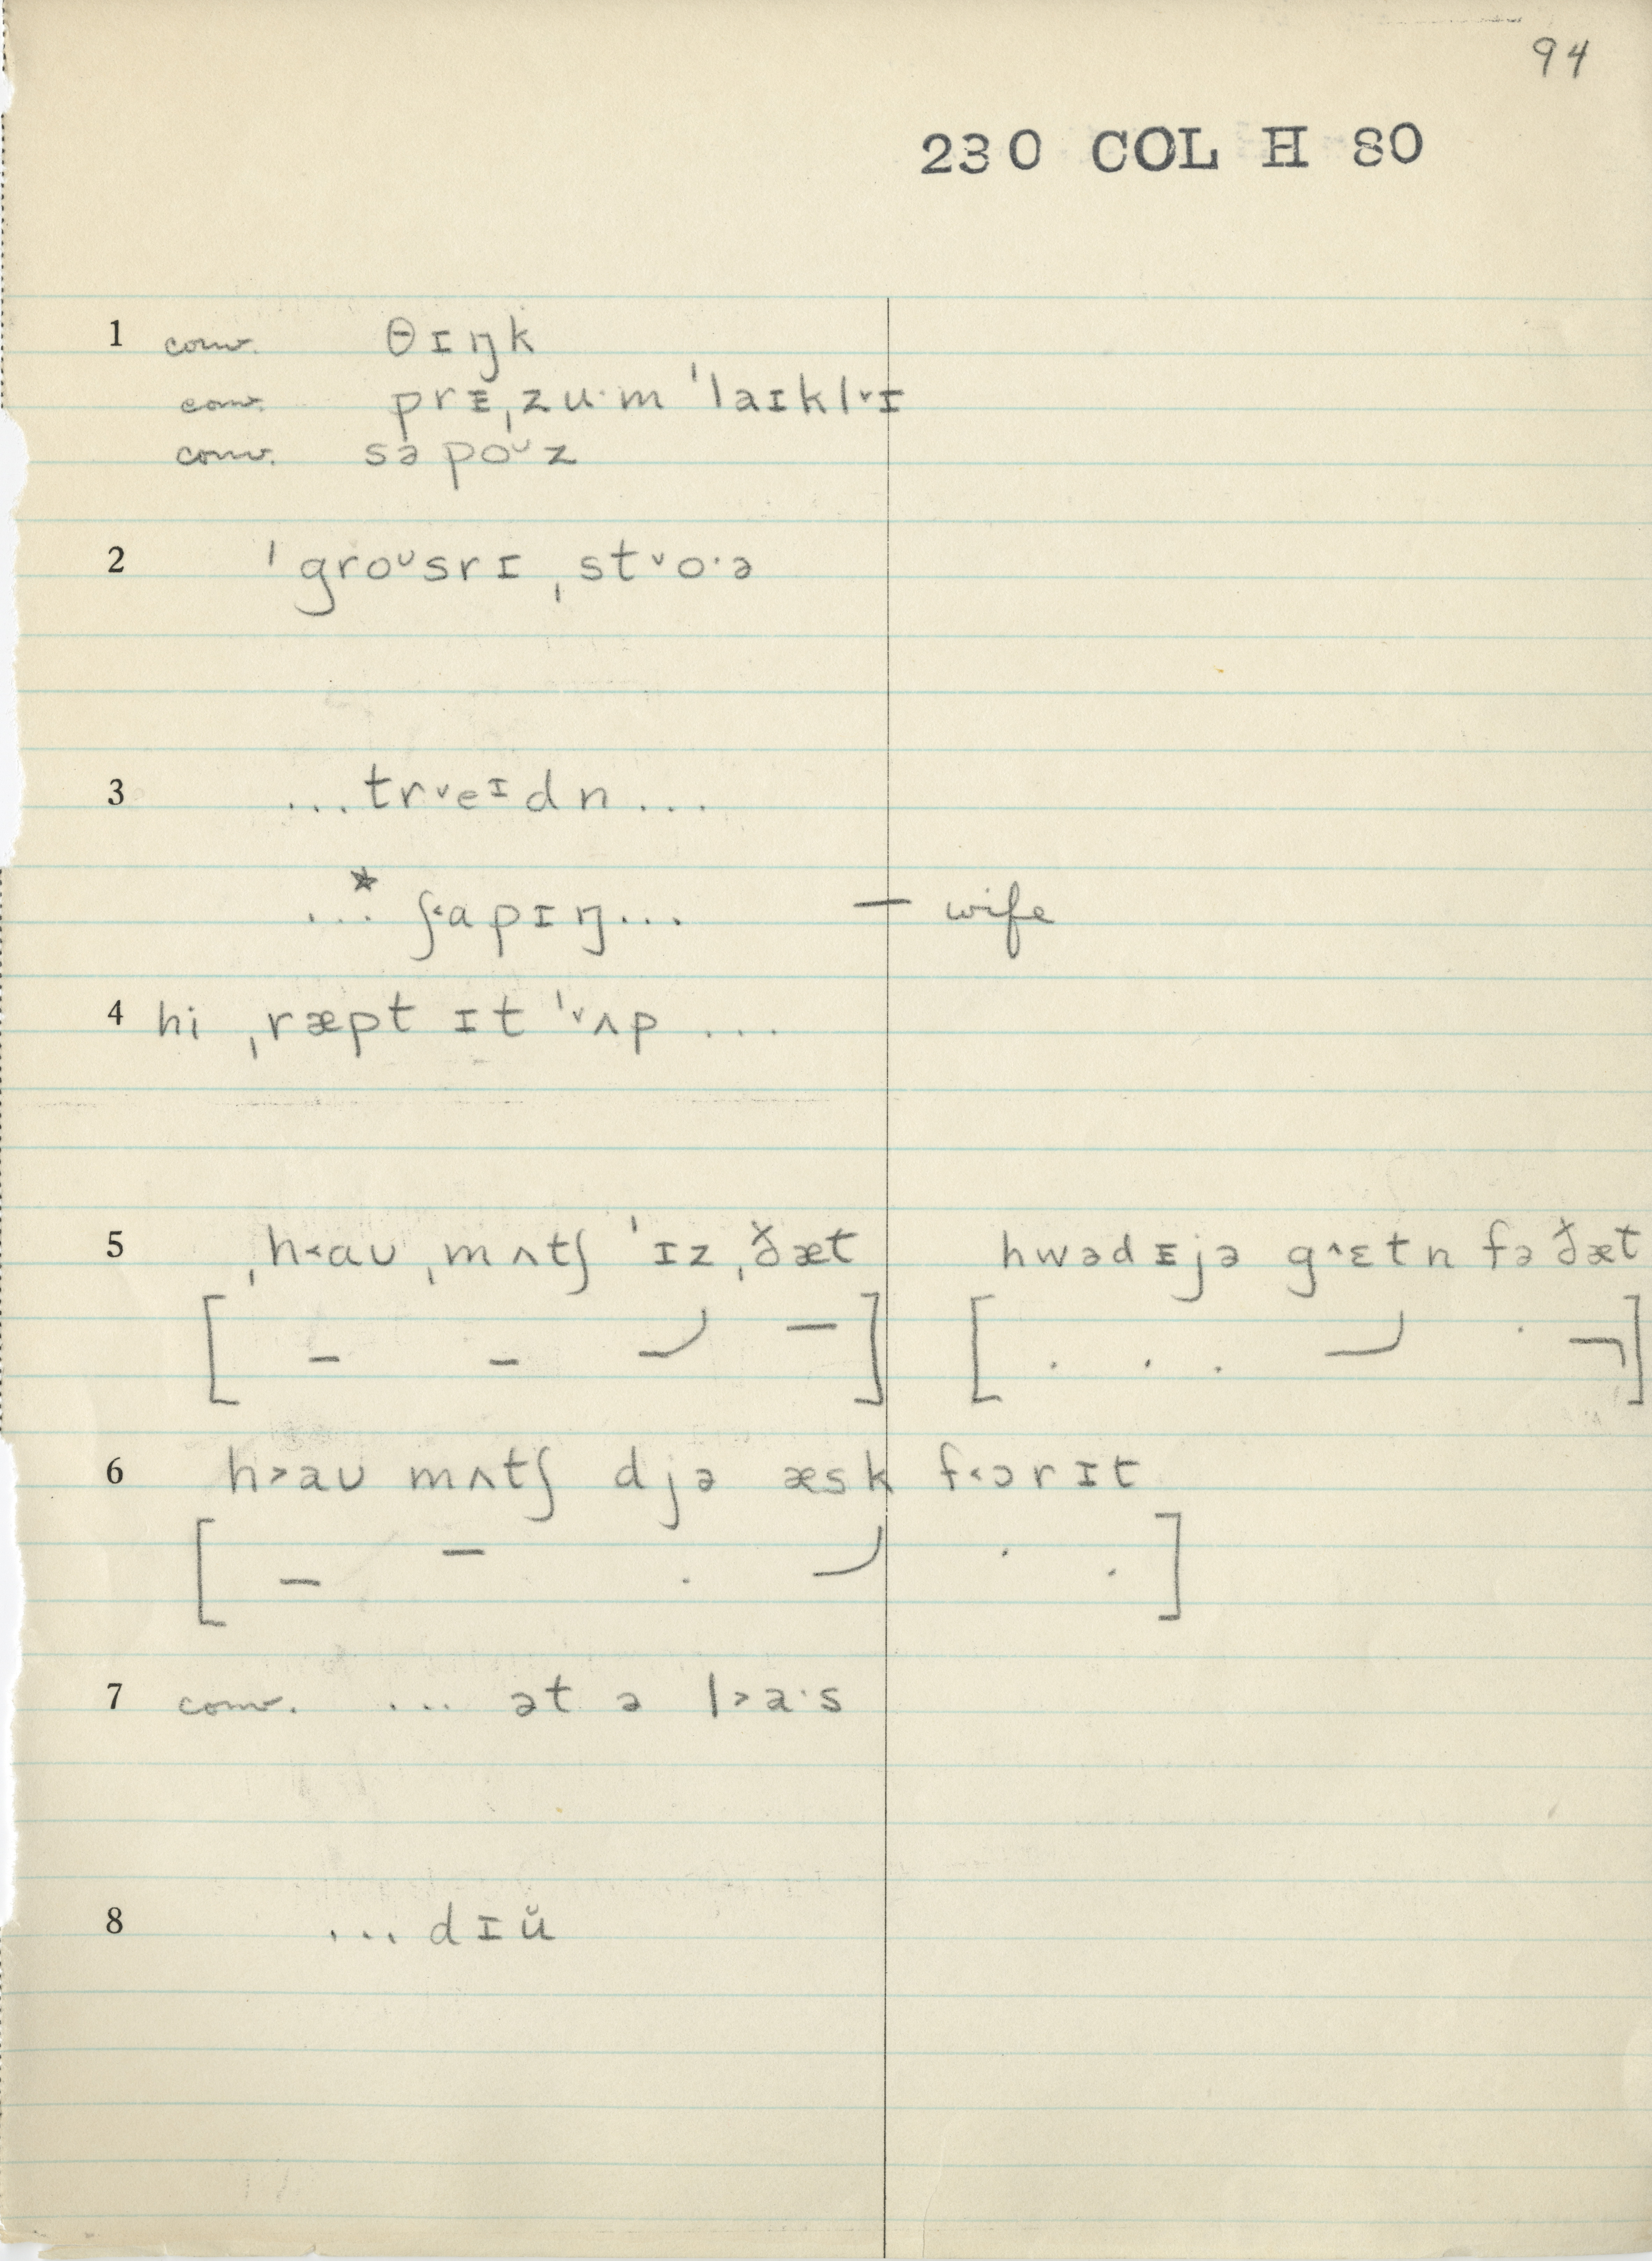 94
230 COL H 80
1 conv. θɪŋk
conv. prᵻˌzu·m ˈlaɪkl˅ɪ
conv. səpoᶷz
2 ˈgroᶷsrɪ ˌst˅o·ə
3 ...tr˅eᶦdn...
...* ʃ˂apɪŋ... — wife
4 hi ˌræpt ɪt ˈ˅ʌp ...
5 ˌh˂aʊ ˌmʌtʃ ˈɪz ˌð̌æt hwədᵻjə g˄ɛtn fə ð̌æt
6 h˃aʊ mʌtʃ djə æsk f˂ɔrɪt
7 conv. ... ət ə l˃a·s
8 ...dɪŭ